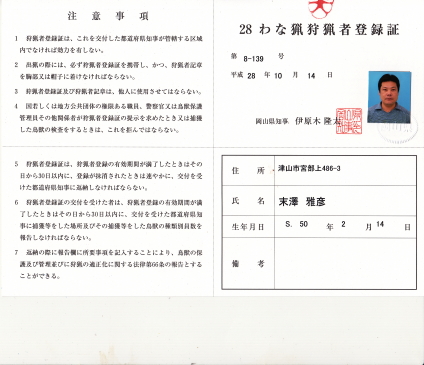 注意事項
1 狩猟者登録証は、これを交付した都道府県知事が管轄する区域
内でなければ効力を有しない。
2 出猟の際には、必ず狩猟者登録証を携帯し、かつ、狩猟者記章
を胸部又は帽子に着けなければならない。
3 狩猟者登録証及び狩猟者記章は、他人に使用させてはならない。
4 国若しくは地方公共団体の権限ある職員、警察官又は鳥獣保護
管理員その他関係者が狩猟者登録証の提示を求めたとき又は捕獲
した鳥獣の検査をするときは、これを拒んではならない。
5 狩猟者登録証は、狩猟者登録の有効期間が満了したときはその
日から30日以内に、登録が抹消されたときは速やかに、交付を受
けた都道府県知事に返納しなければならない。
6 狩猟者登録証の交付を受けた者は、狩猟者登録の有効期間が満
了したときはその日から30日以内に、交付を受けた都道府県知
事に捕獲等をした場所及びその捕獲等をした鳥獣の種類別員数を
報告しなければならない。
7 返納の際に報告欄に所要事項を記入することにより、鳥獣の保
護及び管理並びに狩猟の適正化に関する法律第66条の報告とする
ことができる。
28 わな猟狩猟者登録証
第 8-139 号
平成 28 年 10 月 14 日
岡山県知事 伊原木 隆太
住所 津山市宮部上486-3
氏名 末澤 雅彦
生年月日 S. 50 年 2 月 14 日
備考